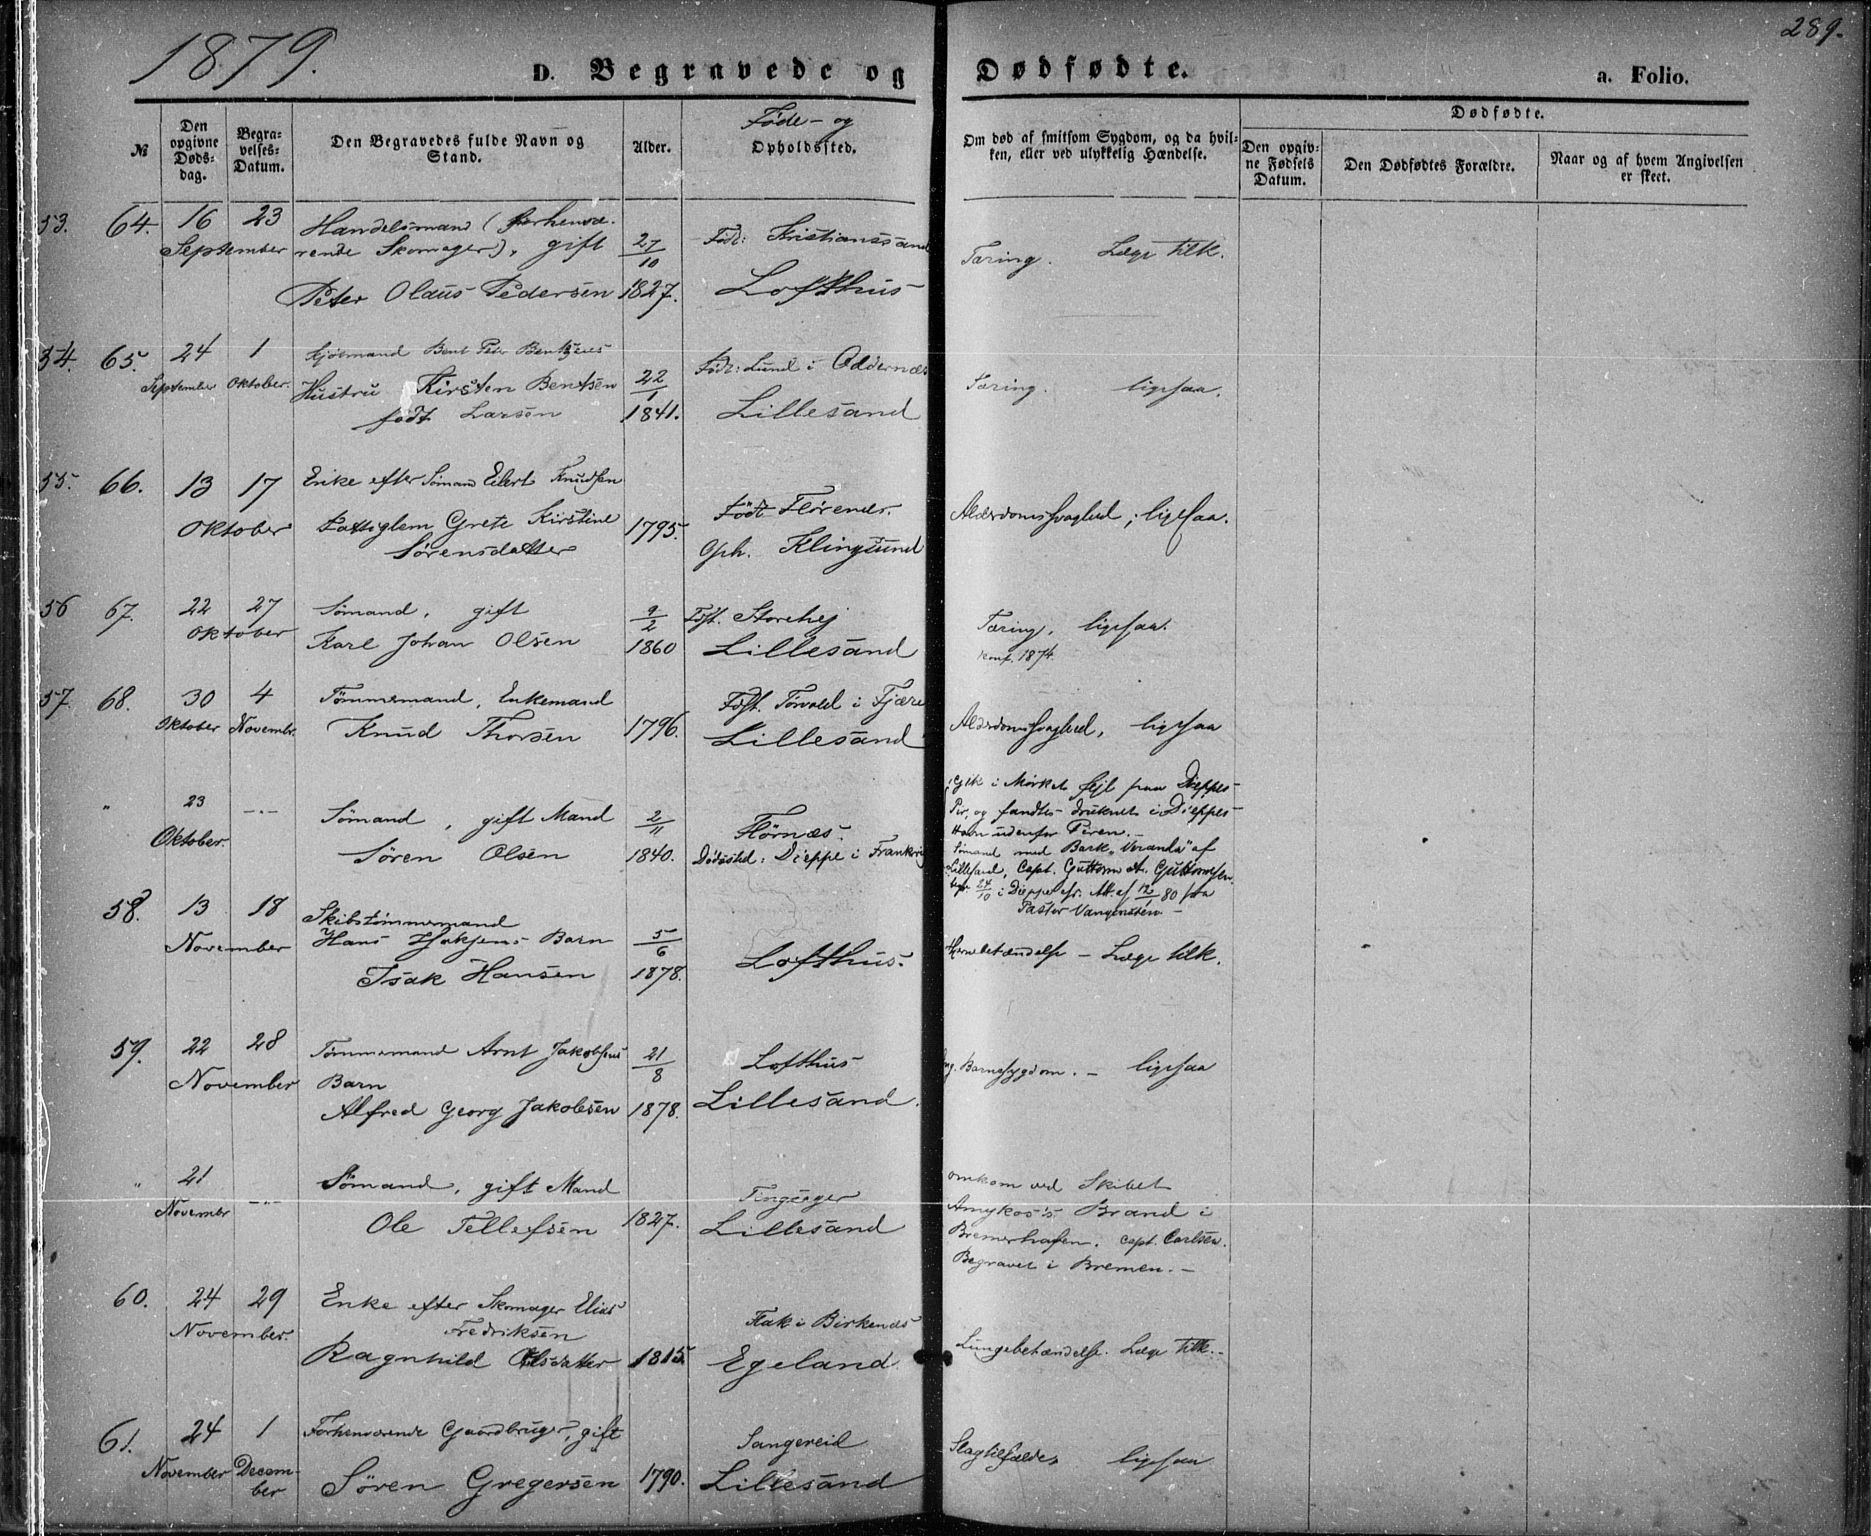 1879.
289.
D. Begravede og Dødfødte.
a. Folio.
№
Den opgivne Døds-dag.
Begra-velses-Datum.
Den Begravedes fulde Navn og Stand.
Alder.
Føde- og
Opholdssted.
Om død af smitsom Sygdom, og da hvil-ken, eller ved ulykkelig Hændelse.
Dødfødte.
Den opgiv-ne Fødsels Datum.
Den Dødfødtes Forældre.
Naar og af hvem Angivelsen er skeet.
53. 64. 16 23 Handelsmand (forhenvæ-
September rende Skomager), gift 27/10 Født: Kristianssand
Peter Olaus Pedersen 1827. Lofthus
Tæring. Læge tilk.
54. 65. 24 1 Bent Peder Bentsens
September Oktober. Hustru Kirsten Bentsen 22/1 Født: Lund i Oddernæs
født Larsen 1841. Lillesand
Tæring. ligesaa.
55. 66. 13 17 Enke efter Sømand Eilert Knudsen
Oktober Fattiglem Grete Kirstine 1795. Født Flørenæs.
Sørensdatter Oph. Klingsund
Alderdomssvaghed; ligesaa.
56 67. 22 27 Sømand, gift 9/2 Født. Storehej
Oktober Karl Johan Olsen 1860 Lillesand
Tæring, ligesaa.
Konf. 1874.
57. 68. 30 4 Tømmermand, Enkemand Født. i Fjære
Oktober Novembr. Knud Thorsen 1796. Lillesand
Alderdomssvaghed, ligesaa
" 23 -"- Sømand, gift Mand 2/11 Flørnæs.
Oktober. Søren Olsen 1840. Dødssted: Dieppe i Frankrig
Gik i Mørket fejl paa Dieppes-
Pir, og fandtes druknet i Dieppes-
Havn udenfor Piren. -
Sømand med Bark "Veranda" af
Lillesand, Capt. Guttorm A. Guttormsen.
begr. 24/10 i Dieppe efr. Att. af 12/1 80 fra
Pastor Vangensten. -
58. 13 18 Skibstømmermand
November Hans Barn 5/6
Isak Hansen 1878. Lofthus.
Hjernebetændelse - Læge tilk.
59. 22 28 Tømmermand Arnt Jakobsens 21/8 Lofthus
November Barn
Alfred Georg Jakobsen 1878. Lillesand.
Barnesygdom. - ligesaa
" 21 -"- Sømand, gift Mand Tingsager
Novembr Ole Tellefsen 1827. Lillesand
omkom ved Skibet
Amykos's Brand i
Bremerhafen. Capt. Carlsen.
Begravet i Bremen. -
60. 24 29 Enke efter Skomager Elias
November. Fredriksen Flak i Birkenæs
Ragnhild Olsdatter 1815. Egeland.
Lungebetændelse. Læge tilk. -
61. 24 1 Forhenværende Gaardbruger, gift Sangereid
November Decem-
ber Søren Gregersen 1790. Lillesand
Slagtilfælde, ligesaa